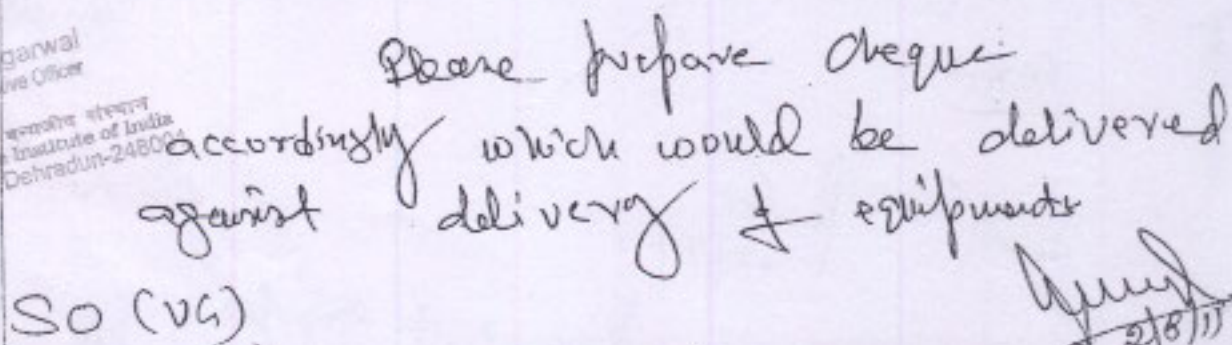 garwal
ive Officer
वन्यजीव संस्थान
Institute of India
Dehradun-248001
Please prepare cheque
accordingly which would be delivered
against delivery of equipments
SO (VG)
2/8/11